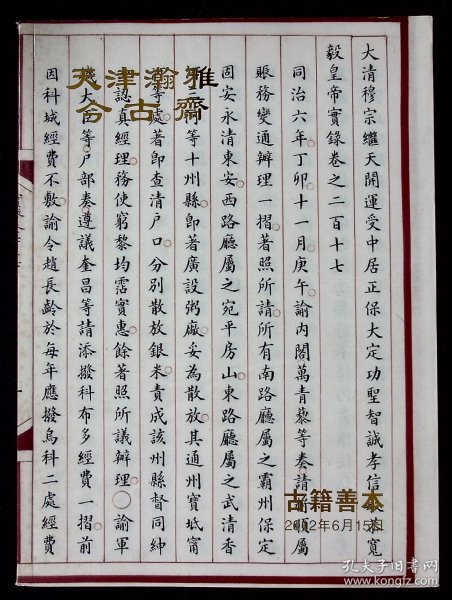 天津瀚雅
今古齋
大清穆宗繼天開運受中居正保大定功聖智誠孝信恭寬
毅皇帝實錄卷之二百十七
同治六年丁卯十一月庚午諭內閣萬青藜等奏請順屬
賬務變通辦理一摺著照所請所有南路廳屬之霸州保定
固安永清東安西路廳屬之宛平房山東路廳屬之武清香
等十州縣卽著廣設粥廠妥為散放其通州寶坻甯
等處著卽查清戶口分別散放銀米責成該州縣督同紳
認真經理務使窮黎均霑實惠餘著照所議辦理○諭軍
大等戶部奏遵議奎昌等請添撥科布多經費一摺前
因科城經費不敷諭令趙長齡於每年應撥烏科二處經費
古籍善本
2012年6月15日
孔夫子旧书网
www.kongfz.com